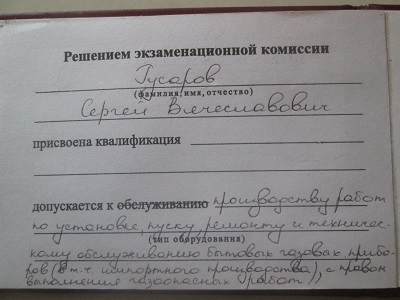 Решением экзаменационной комиссии
Гусаров
(фамилия, имя, отчество)
Сергей Вячеславович
присвоена квалификация
допускается к обслуживанию производству работ
по установке, пуску, ремонту и техничес-
(тип оборудования)
кому обслуживанию бытовых газовых прибо-
ров (в т.ч. импортного производства), с правом
выполнения газоопасных работ